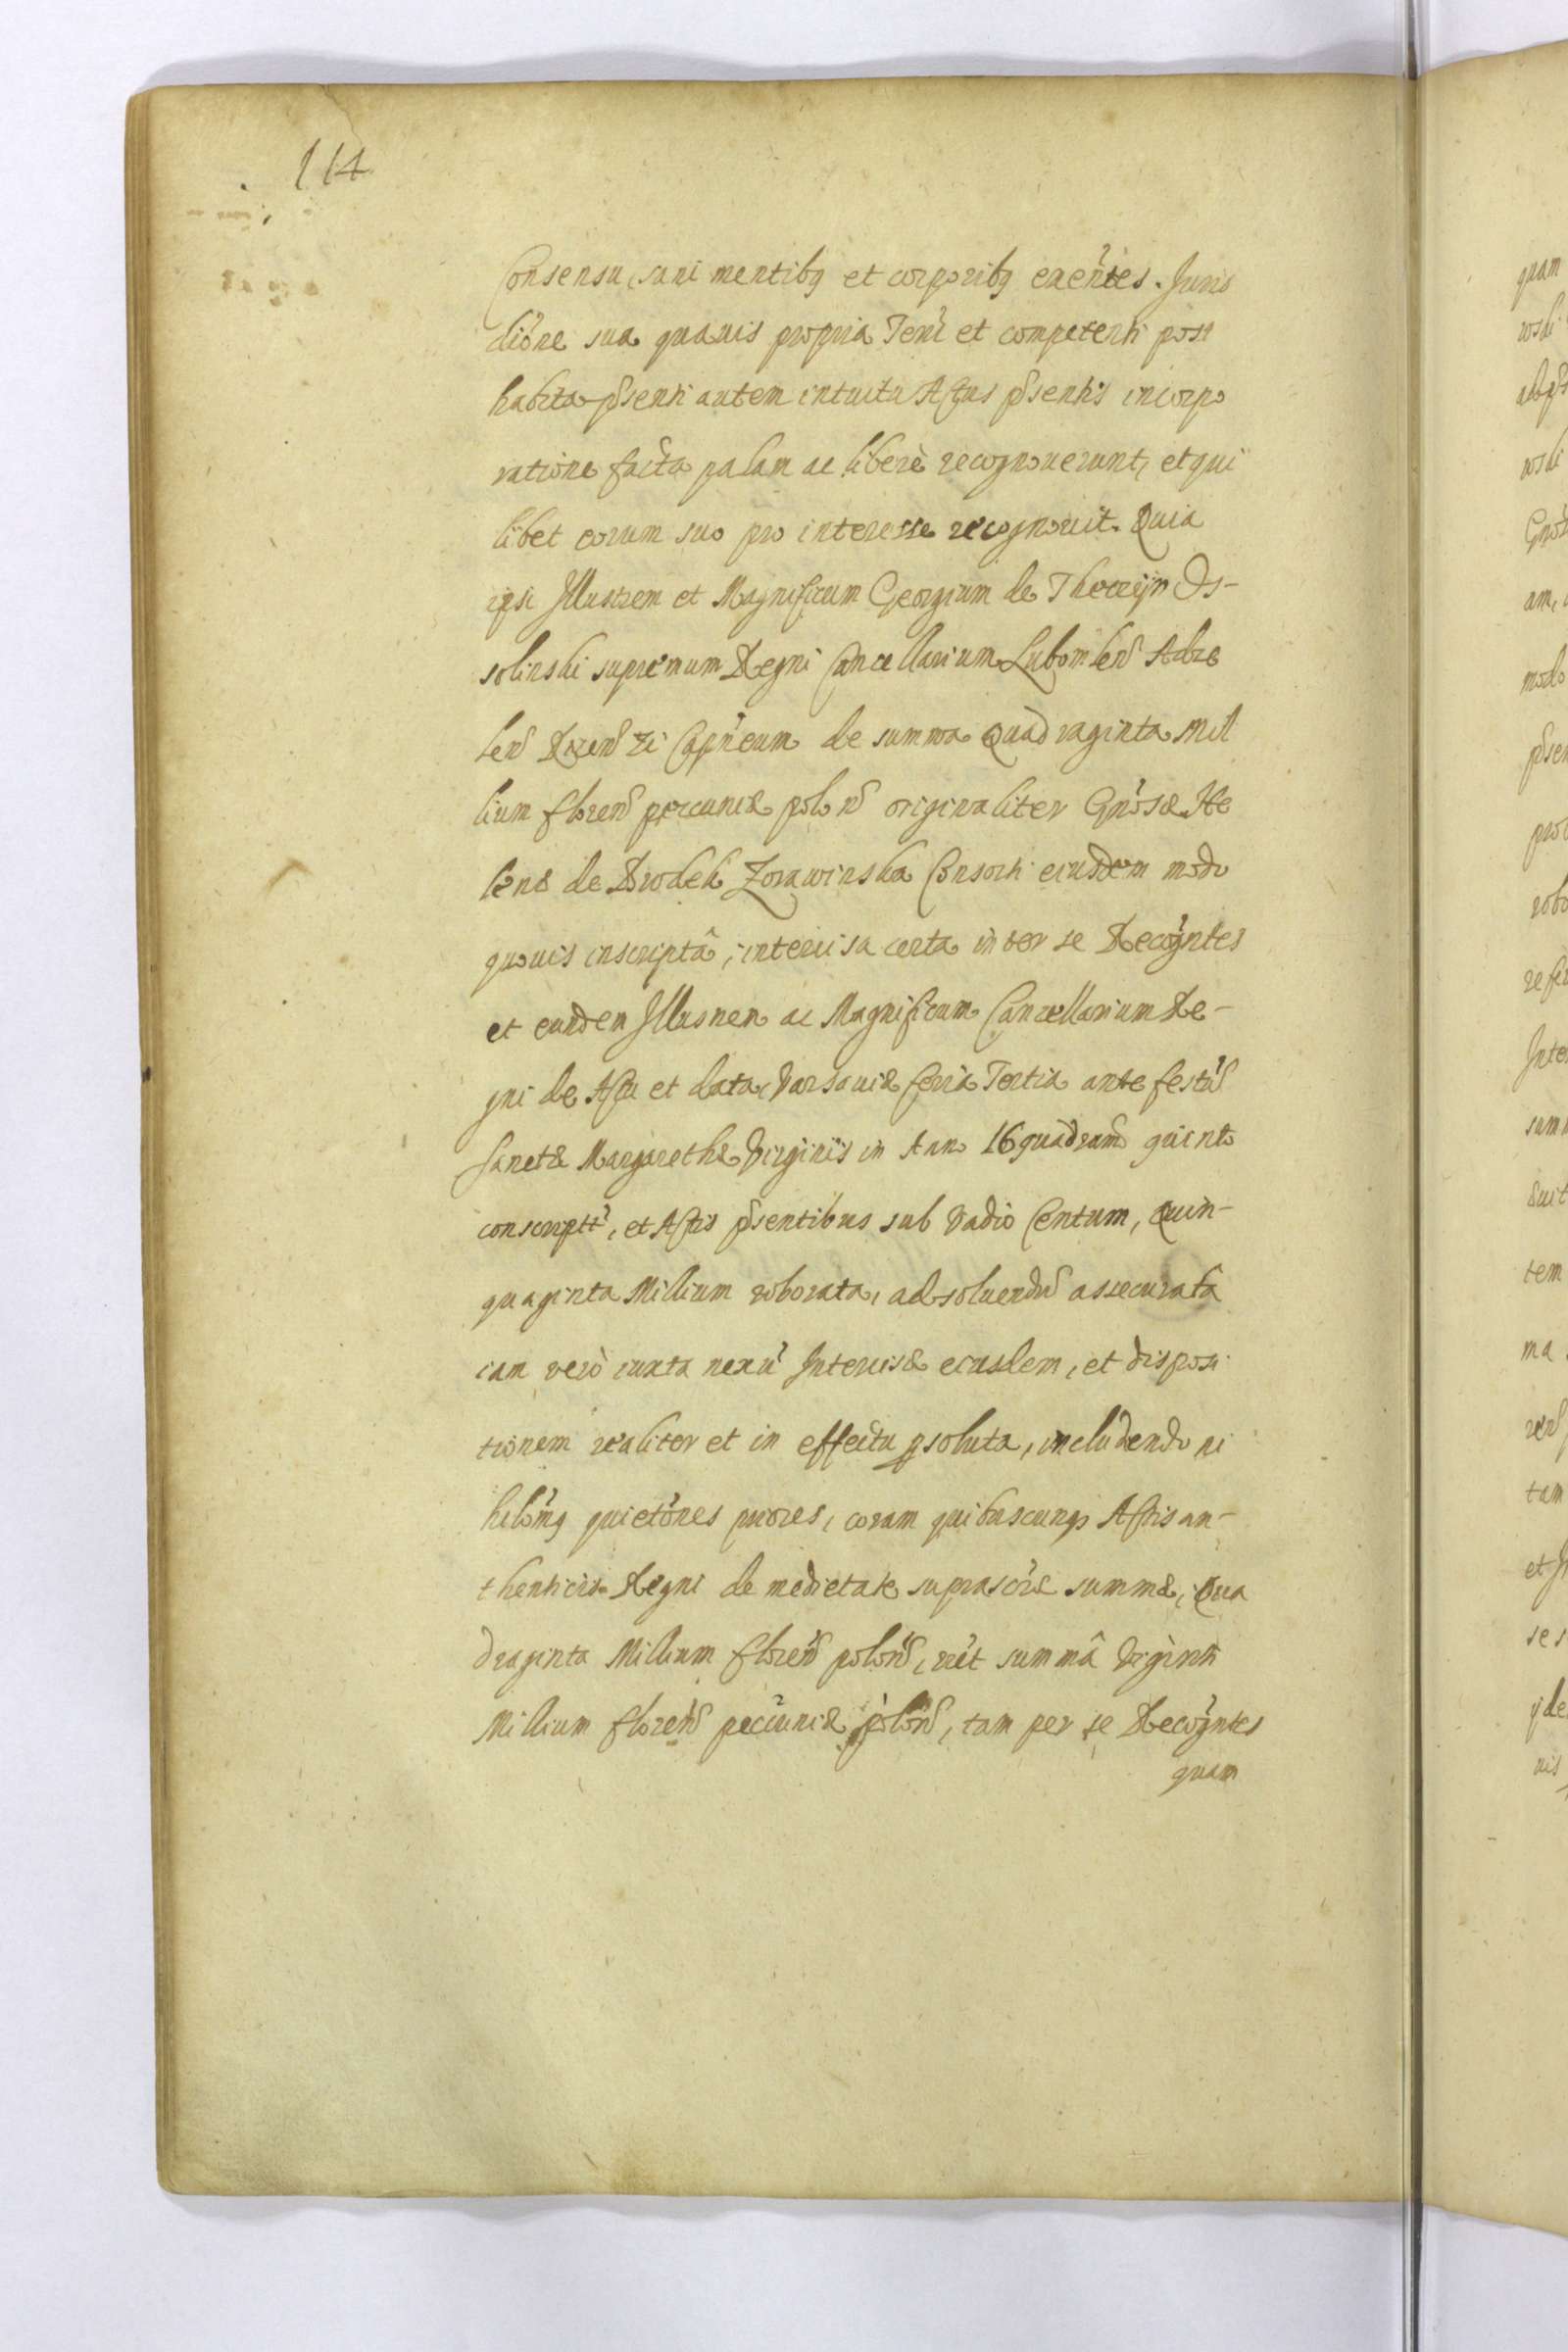 114
Consensu, sani mentibq et corporibq exeñtes. Juris
dióne sua quauis propria Terri et competenti post
habita pñsenti autem intuitu Actus pñsentis incorpo
ratione facta palam ac liberè recognouerunt, et qui
libet eorum suo pro interesse recognouit. Quia
ipsi Jllustrem et Magnificum Georgium de Thenczyn Os-
soliński supremum Regni Cancellarium Lubomlen̄ Adze
len̄ Capn̄eum de summa Quadraginta Mil
lium floren̄ pecuniæ polon̄ originaliter Gnosæ He
lenæ de Brodek Zorawinska Consorti eiusdem modo
quouis inscriptâ, intercisa certa inter se Recogntes
et eundem Jllusrem ac Magnificum Cancellarium Re-
gni de Actu et data Varsauiæ feria Tertia ante festū
Sanctæ Margarethæ Virginis in Anno 16 quadram̄ quinto
conscriptā, et Actis pñsentibus sub Vadio Centum, Quin-
quaginta Millium roborata, ad soluendū assecuratâ
iam verò iuxta nexū Intercisæ eiusdem, et disposi
tionem realiter et in effectu psoluta, includendo ni
hilomq quietónes priores, coram quibuscunq Actis au-
thenticis Regni de medietate suprascræ summæ, Qua
draginta Millium floren̄ polon̄, vét summâ Viginti
Millium floren̄ pecuniæ polon̄, tam per se Recogntes
quam